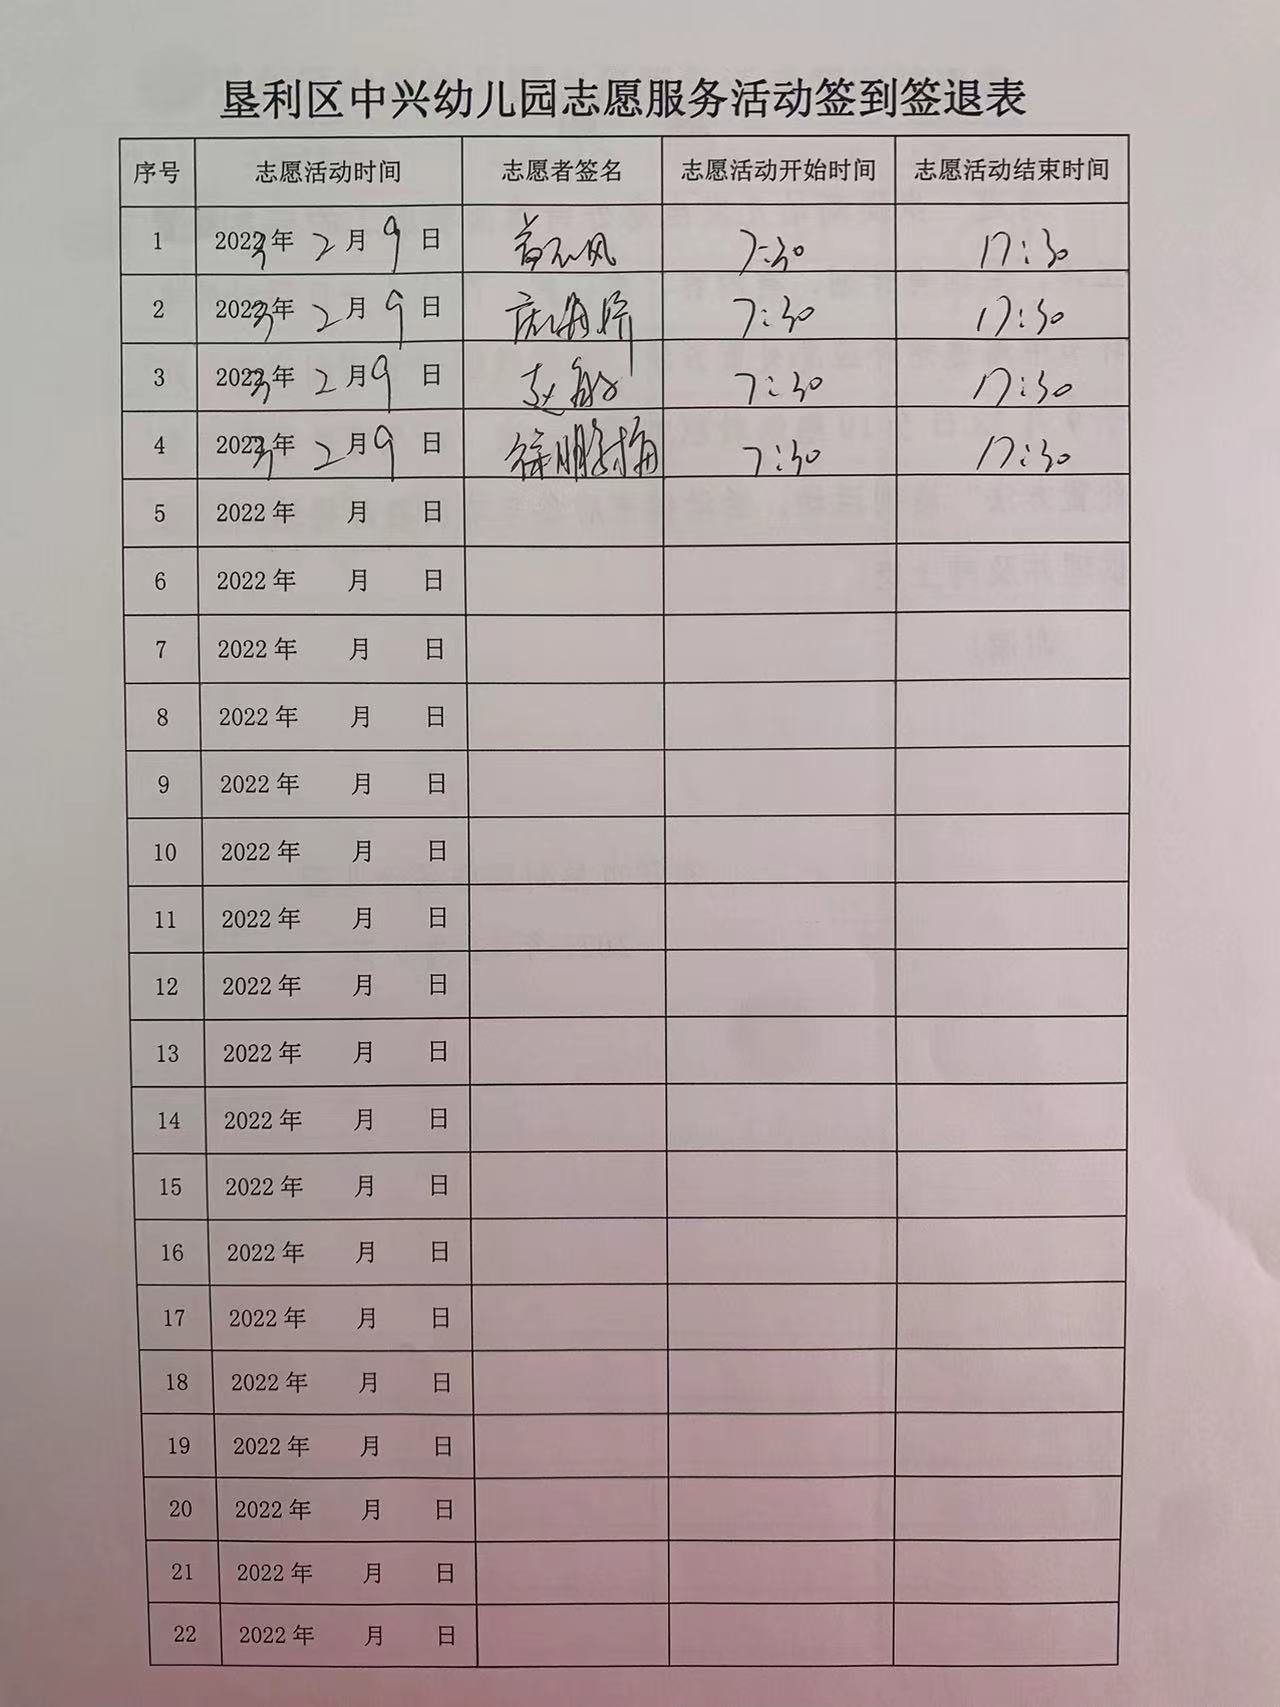 垦利区中兴幼儿园志愿服务活动签到签退表
序号 志愿活动时间 志愿者签名 志愿活动开始时间 志愿活动结束时间
1 2023年 2月 9日 7:30 17:30
2 2023年 2月 9日 7:30 17:30
3 2023年 2月 9日 赵 7:30 17:30
4 2023年 2月 9日 徐明 梅 7:30 17:30
5 2022年 月 日
6 2022年 月 日
7 2022年 月 日
8 2022年 月 日
9 2022年 月 日
10 2022年 月 日
11 2022年 月 日
12 2022年 月 日
13 2022年 月 日
14 2022年 月 日
15 2022年 月 日
16 2022年 月 日
17 2022年 月 日
18 2022年 月 日
19 2022年 月 日
20 2022年 月 日
21 2022年 月 日
22 2022年 月 日